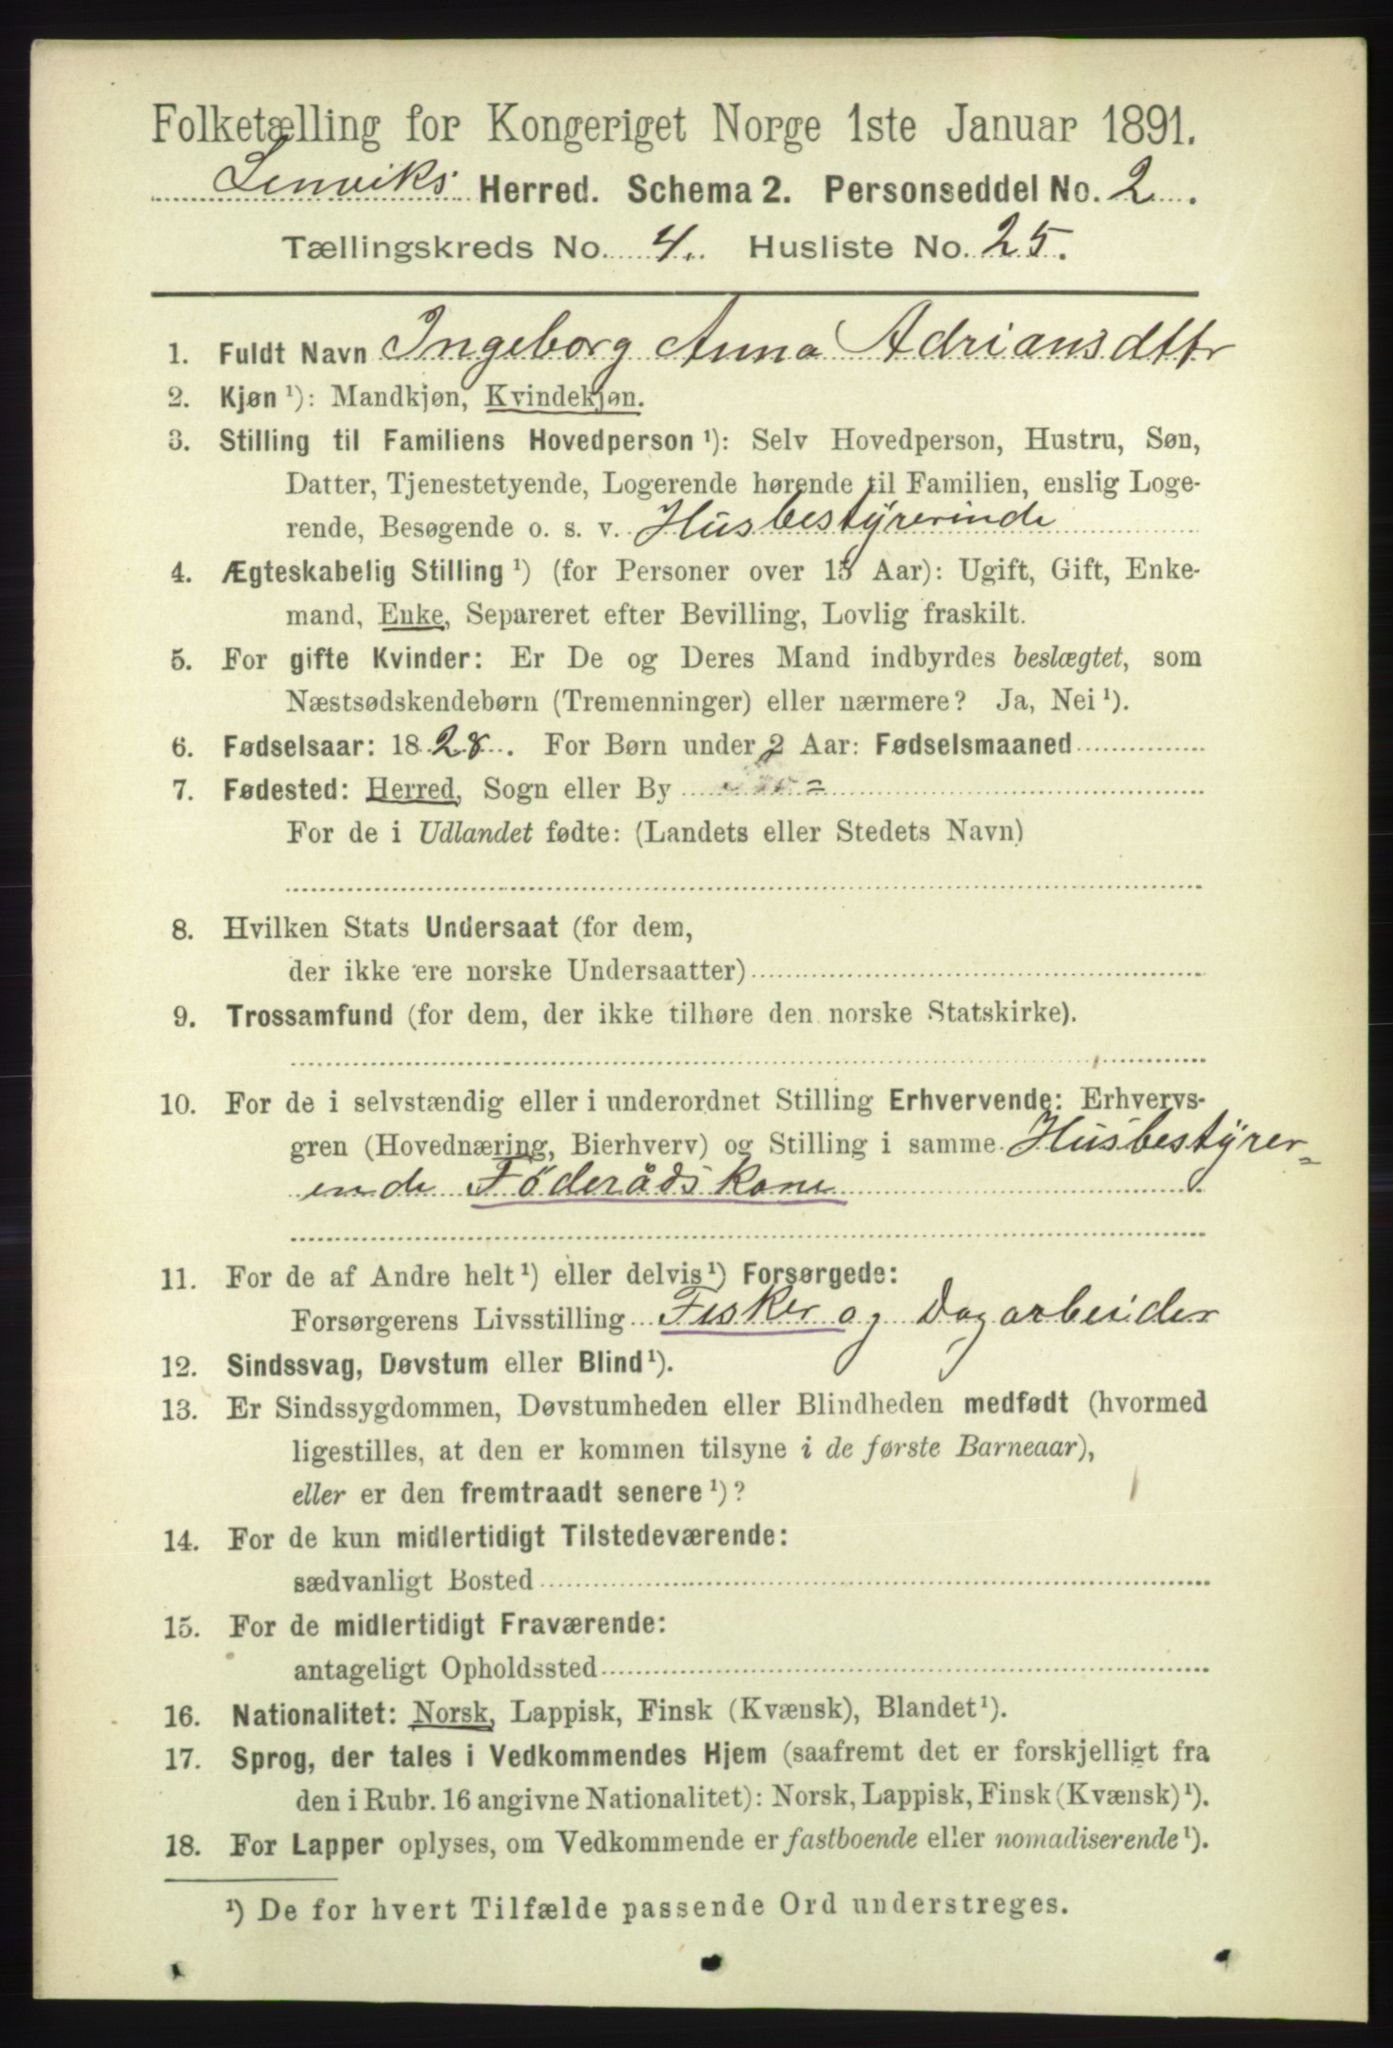 Folketælling for Kongeriget Norge 1ste Januar 1891.
Lenviks Herred. Schema 2. Personseddel No. 2.
Tællingskreds No. 4. Husliste No. 25.
1. Fuldt Navn Ingeborg Anna Adriansdttr
2. Kjøn ¹): Mandkjøn, Kvindekjøn.
3. Stilling til Familiens Hovedperson ¹): Selv Hovedperson, Hustru, Søn,
Datter, Tjenestetyende, Logerende hørende til Familien, enslig Loge-
rende, Besøgende o. s. v. Husbestyrerinde
4. Ægteskabelig Stilling ¹) (for Personer over 15 Aar): Ugift, Gift, Enke-
mand, Enke, Separeret efter Bevilling, Lovlig fraskilt.
5. For gifte Kvinder: Er De og Deres Mand indbyrdes beslægtet, som
Næstsødskendebørn (Tremenninger) eller nærmere? Ja, Nei ¹).
6. Fødselsaar: 1828. For Børn under 2 Aar: Fødselsmaaned
7. Fødested: Herred, Sogn eller By
For de i Udlandet fødte: (Landets eller Stedets Navn)
8. Hvilken Stats Undersaat (for dem,
der ikke ere norske Undersaatter)
9. Trossamfund (for dem, der ikke tilhøre den norske Statskirke).
10. For de i selvstændig eller i underordnet Stilling Erhvervende: Erhvervs-
gren (Hovednæring, Bierhverv) og Stilling i samme Husbestyrer=
ende Föderådskone
11. For de af Andre helt ¹) eller delvis ¹) Forsørgede:
Forsørgerens Livsstilling Fisker og Dagarbeider
12. Sindssvag, Døvstum eller Blind ¹).
13. Er Sindssygdommen, Døvstumheden eller Blindheden medfødt (hvormed
ligestilles, at den er kommen tilsyne i de første Barneaar),
eller er den fremtraadt senere ¹)?
14. For de kun midlertidigt Tilstedeværende:
sædvanligt Bosted
15. For de midlertidigt Fraværende:
antageligt Opholdssted
16. Nationalitet: Norsk, Lappisk, Finsk (Kvænsk), Blandet ¹).
17. Sprog, der tales i Vedkommendes Hjem (saafremt det er forskjelligt fra
den i Rubr. 16 angivne Nationalitet): Norsk, Lappisk, Finsk (Kvænsk) ¹).
18. For Lapper oplyses, om Vedkommende er fastboende eller nomadiserende ¹).
¹) De for hvert Tilfælde passende Ord understreges.